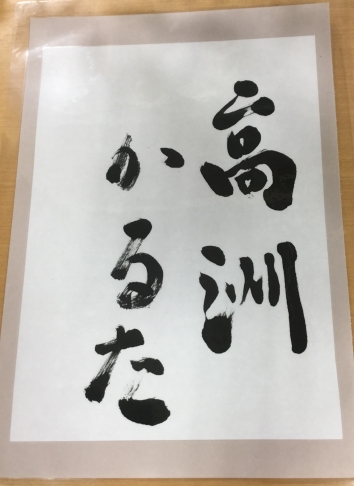 高洲
かるた